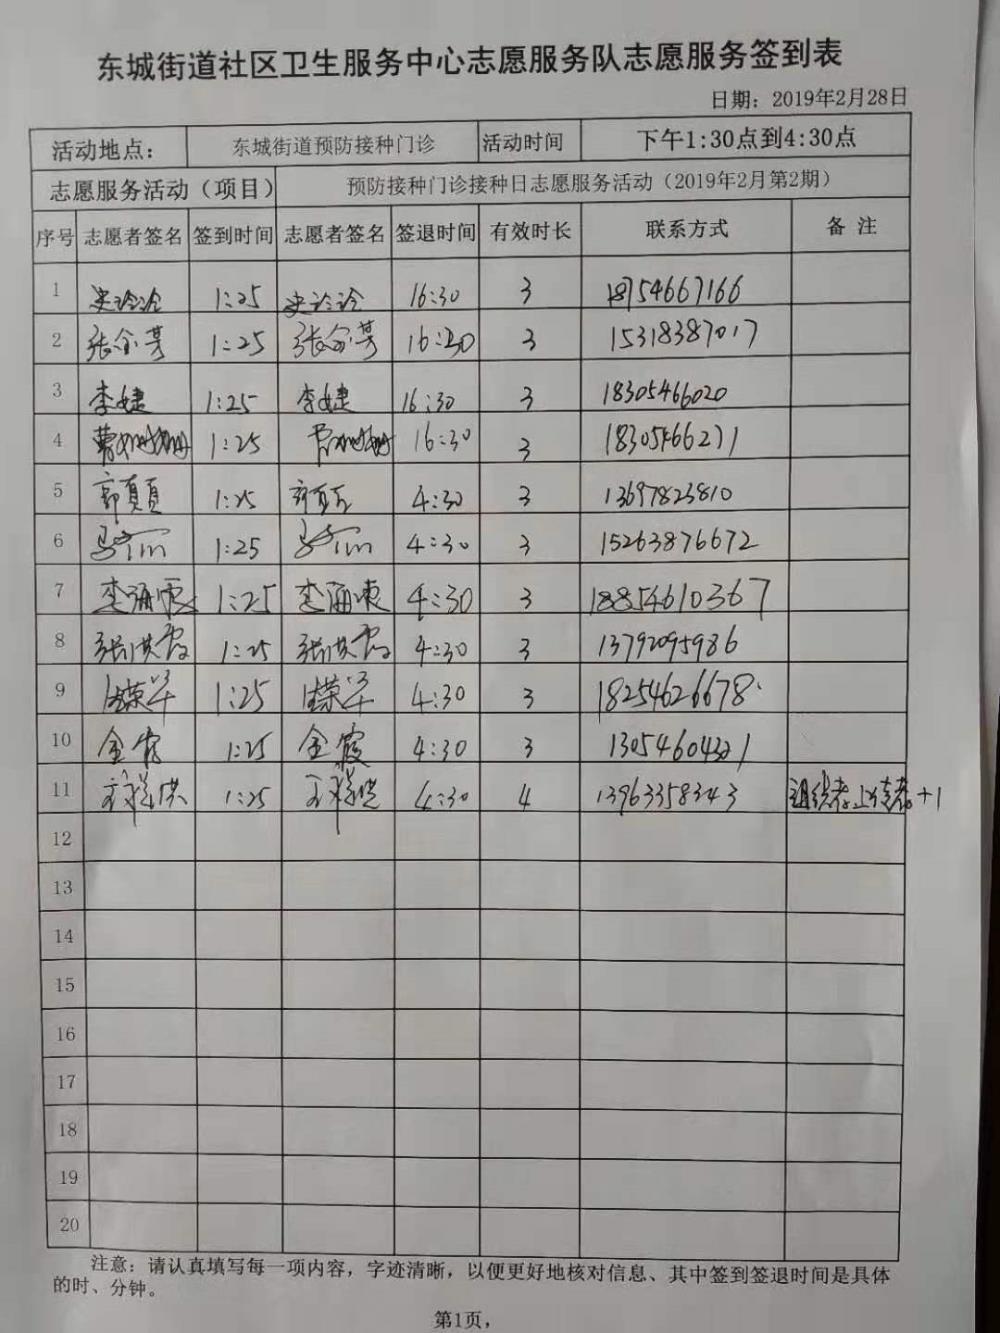 东城街道社区卫生服务中心志愿服务队志愿服务签到表
日期：2019年2月28日
活动地点： 东城街道预防接种门诊 活动时间 下午1:30点到4:30点
志愿服务活动（项目） 预防接种门诊接种日志愿服务活动（2019年2月第2期）
序号 志愿者签名 签到时间 志愿者签名 签退时间 有效时长 联系方式 备 注
1 1:25 16:30 3 18754667166
2 张金芳 1:25 张金芳 16:30 3 15318387017
3 李婕 1:25 李婕 16:30 3 18305466020
4 1:25 16:30 3 18305466271
5 郭真真 1:25 4:30 3 13697823810
6 1:25 4:30 3 15263876672
7 1:25 4:30 3 18854610367
8 张洪霞 1:25 张洪霞 4:30 3 13792095986
9 1:25 4:30 3 18254626678
10 金霞 1:25 金霞 4:30 3 13054604321
11 1:25 4:30 4 13963358343 组织者上传者+1
12
13
14
15
16
17
18
19
20
注意：请认真填写每一项内容，字迹清晰，以便更好地核对信息、其中签到签退时间是具体
的时、分钟。
第1页，